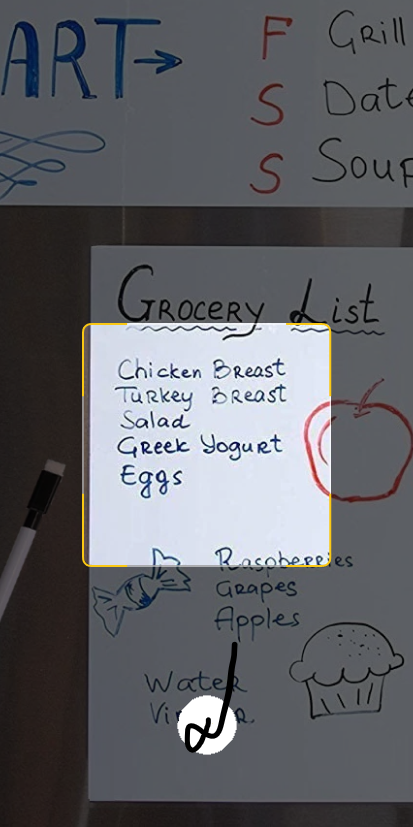 ART→
F Grill
S Date
S Soup
Grocery List
Chicken Breast
Turkey Breast
Salad
Greek Yogurt
Eggs
Raspberries
Grapes
Apples
Water